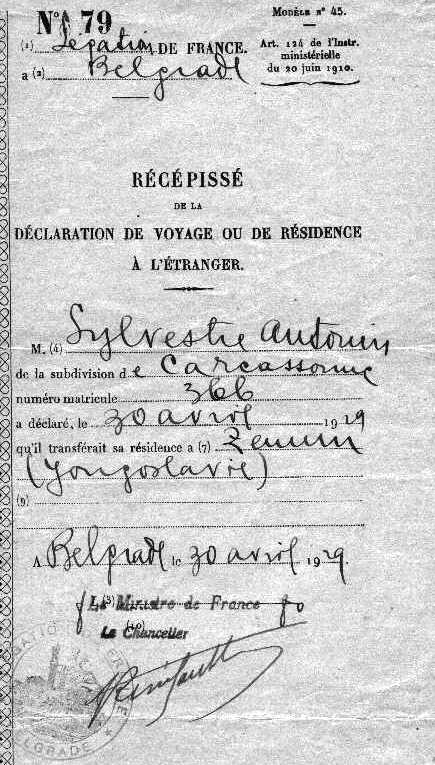 N° 79
MODÈLE N° 45.
(1) Légation DE FRANCE.
a (2) Belgrade
Art. 124 de l'Instr.
ministérielle
du 20 juin 1910.
RÉCÉPISSÉ
DE LA
DÉCLARATION DE VOYAGE OU DE RÉSIDENCE
À L'ÉTRANGER.
M. (4) Sylvestre Audouin
de la subdivision de Carcassonne
numéro matricule 366
a déclaré, le 30 avril 1929
qu'il transférait sa résidence a (7) Zemun
(Yougoslavie)
(9)
A Belgrade le 30 avril 1929.
Le (3) Ministre de France
(10)
Le Chancelier